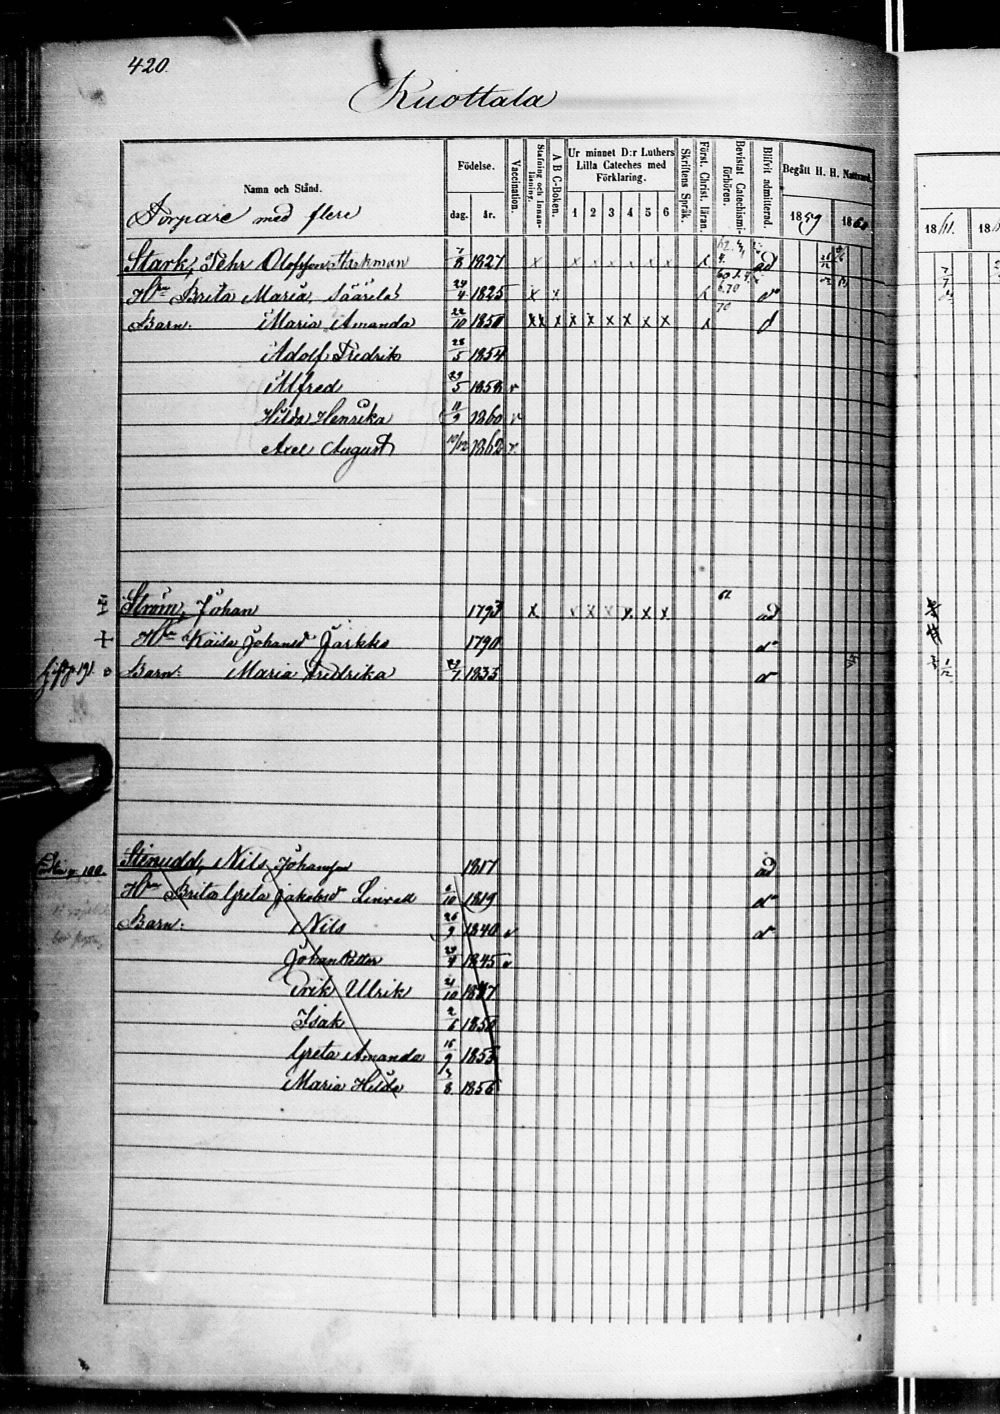 420.
Kuottala
Namn och Stånd.
Födelse.
dag.
år.
Vaccination.
Stafning och Innanläsning.
A B C-Boken.
Ur minnet D:r Luthers
Lilla Cateches med
Förklaring.
1 2 3 4 5 6
Skriftens Språk.
Först. Christ. läran.
Bevistat Catechismiförhören.
Blifvit admitterad.
Begått H. H. Nattvard.
1859 1860
1861
Torpare med flere
Stark, Pehr Olofsson Harkman 7/8 1827 x x x x x x x x ad
H:n Brita Maria Säärelä 24/4 1825 x x x
Barn: Maria Amanda 22/10 1850 xx x x x x x x x x
Adolf Fredrik 28/5 1854
Alfred 29/5 1858 v
Hilda Henrika 11/9 1860 v
Axel August 10/12 1862 v
Ström, Johan 1793 x x x x x x x ad
H:n Kaisa Johansd:r Jarkko 1790
Barn: Maria Fredrika 1835
Stenudd, Nils Johansson 1817 ad
H:n Brita Greta Jakobsd 6/10 1819
Barn: Nils 26/9 1840 v
Johan Petter 24/4 1845 v
Erik Ulrik 21/10 1847
Isak 2/6 1850
Greta Amanda 15/9 1853
Maria Hilda 3/8 1856